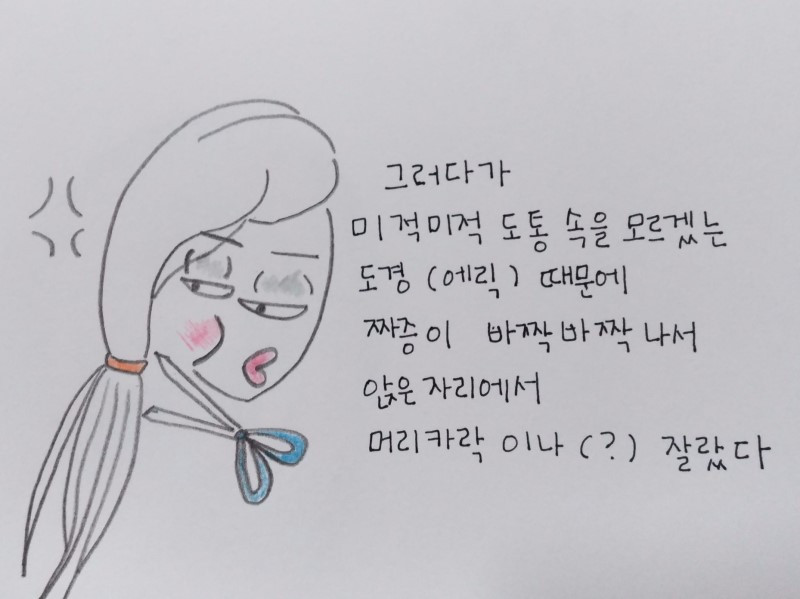 그러다가
미적미적 도통 속을 모르겠는
도경 (에릭) 때문에
짜증이 바짝바짝 나서
앉은자리에서
머리카락 이나 (?) 잘랐다